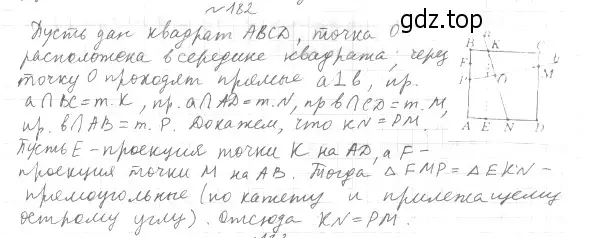 №182
Пусть дан квадрат ABCD, точка O
расположена в середине квадрата; через
точку O проходят прямые a⊥b, пр.
a∩BC=т.K, пр. a∩AD=т.N, пр b∩CD=т.M,
пр. b∩AB=т.P. Докажем, что KN=PM.
Пусть E-проекция точки K на AD, а F-
проекция точки M на AB. Тогда △FMP=△EKN-
прямоугольные (по катету и прилежащему
острому углу). Отсюда KN=PM.
B K C
F M
P O
A E N D
ГДЗ.РУ